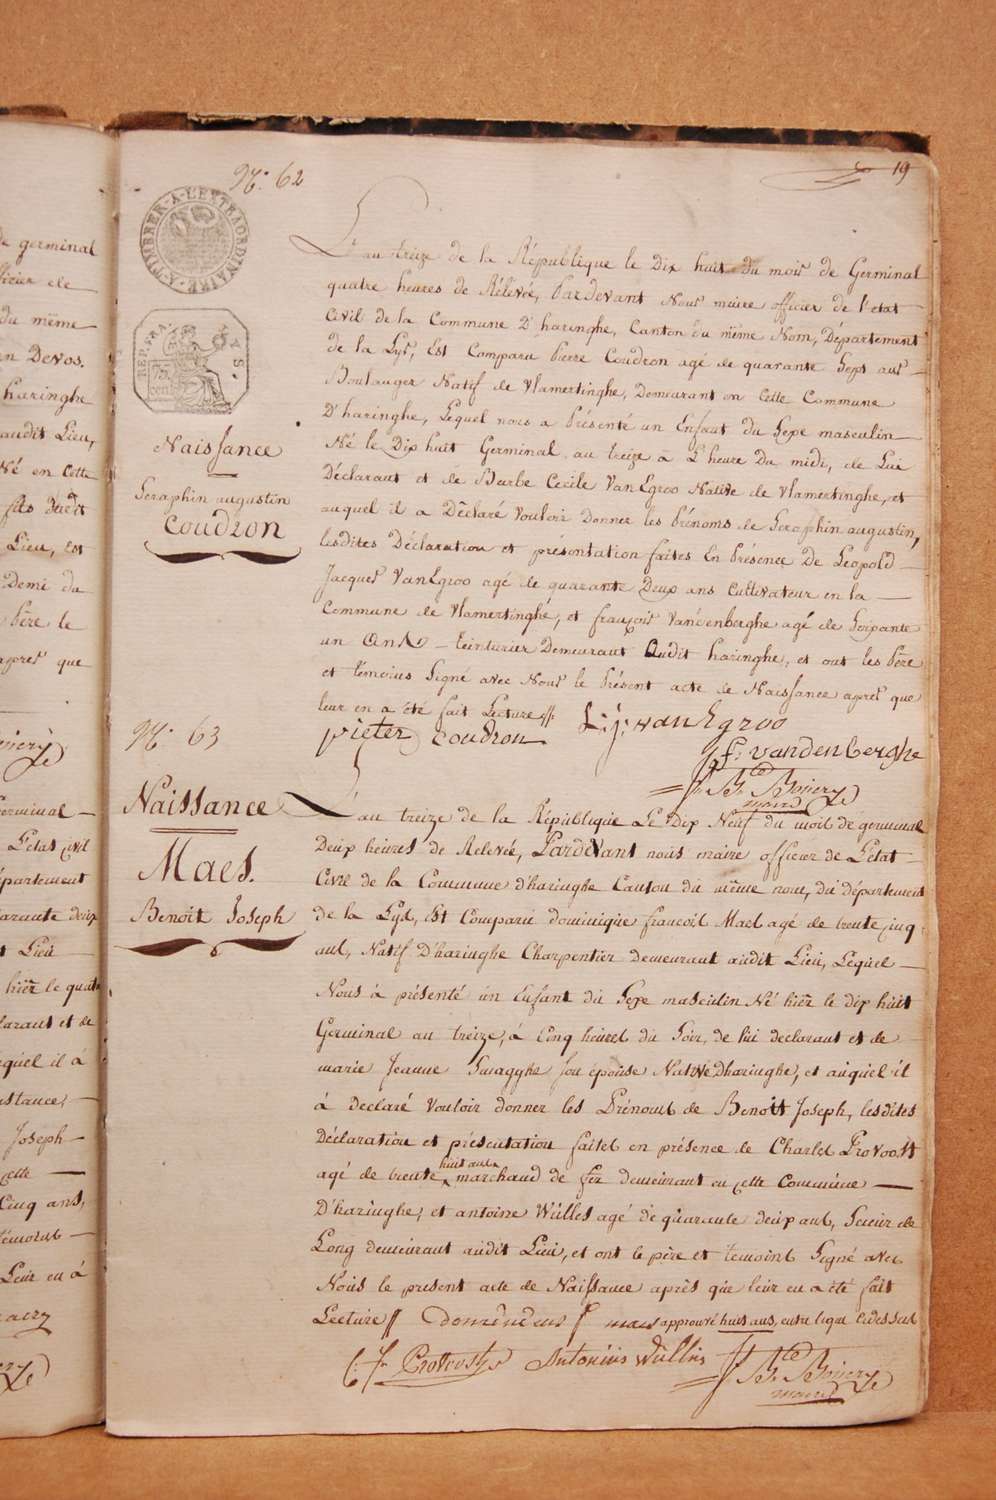 de germinal
du même
en Devos.
haringhe
audit Lieu,
Né en Cette
fils dudit
Lieu, Est
Demi du
Père le
apres que
Germinal
L'etat civil
Département
quarante deux
Lieu
hier le quatre
declarant et de
auquel il à
Constance,
Joseph
cette
Cinq ans,
témoins
Leur en à
19
N.° 62
TIMBRER A L'EXTRAORDINAIRE
REP. FRA.
75
cent
Naissance
Seraphin augustin
Coudron
L'an treize de la République le Dix huit du mois de Germinal
quatre heures de Rélevée, Pardevant Nous maire officier de l'etat
Civil de la Commune D'haringhe, Canton du même Nom, Département
de la Lys, Est Comparu Pierre Coudron agé de quarante Sept ans
Boulanger Natif de Vlamertinghe, Demeurant en Cette Commune
D'haringhe, Lequel nous a Présenté un Enfant du Sexe masculin
Né le Dix huit Germinal au treize à L'heure Du midi, de Lui
Déclarant et de Barbe Cecile VanEgroo Native de Vlamertinghe, et
auquel il a Déclaré Vouloir Donner les Prénoms de Seraphin augustin,
lesdites Déclaration et présentation faites En Présence De Leopold
Jacques VanEgroo agé de quarante Deux ans Cultivateur en la
Commune de Vlamertinghe, et françois Vandenberghe agé de Soixante
un Ans teinturier Demeurant Audit haringhe, et ont les Père
et témoins Signé avec Nous le Présent acte de Naissance apres que
leur en a été fait Lecture //
pieter coudron L:j: vanEgroo
f: vandenberghe
maire
N.° 63
Naissance
Maes.
Benoît Joseph
L'an treize de la République Le Dix Neuf du mois de germinal
Deux heures de Relevée, Pardevant nous maire officier de L'etat
Civil de la Commune d'haringhe Canton du même nom, du département
de la Lys, Est Comparu dominique francois Maes agé de trente cinq
ans, Natif D'haringhe Charpentier demeurant audit Lieu, Lequel
Nous à présenté un Enfant du Sexe masculin Né hier le dix huit
Germinal an treize, à Cinq heures du Soir, de lui declarant et de
marie Jeanne Swagghe son epouse Native D'haringhe, et auquel il
à declaré vouloir donner les Prénoms de Benoît Joseph, lesdites
Déclaration et présentation faites en présence de Charles Provoost
huit ans
agé de trente marchand de fer demeurant en cette Commune
D'haringhe, et antoine Wulles agé de quarante deux ans, Scieur de
Long demeurant audit Lieu, et ont le père et temoins Signé avec
Nous le present acte de Naissance après que leur en a été fait
Lecture // maes approuvé huit ans, entre ligne cidessus
Provoost Antonius Wulles
maire